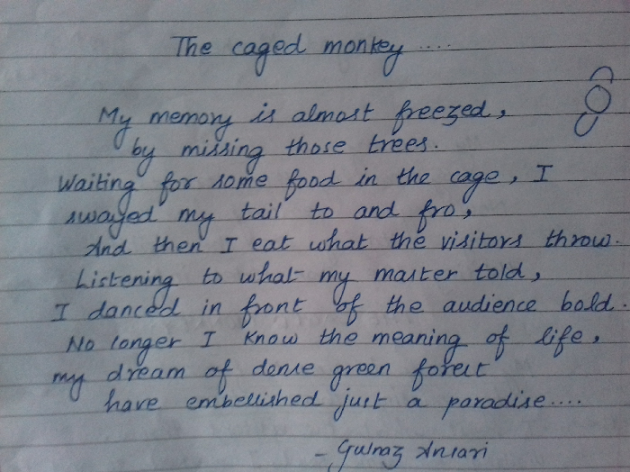 The caged monkey ....
My memory is almost freezed,
by missing those trees.
Waiting for some food in the cage, I
swayed my tail to and fro,
And then I eat what the visitors throw.
Listening to what my master told,
I danced in front of the audience bold.
No longer I know the meaning of life,
my dream of dense green forest
have embellished just a paradise....
- Gulnaz Ansari